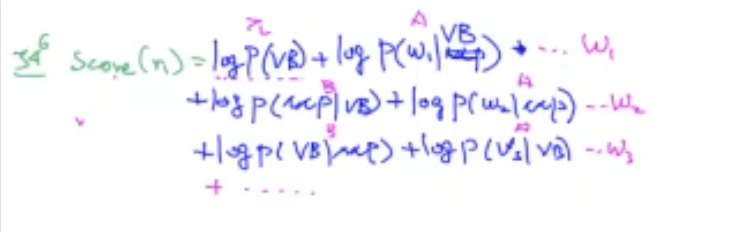 π A
34⁶ Score(n) = log P(VB) + log P(w₁|VB) + ... w₁
B A
+ log P(rcp|VB) + log P(w₂|rcp) -- w₂
B A
+ log P(VB|rcp) + log P(w₃|VB) -- w₃
+ ......